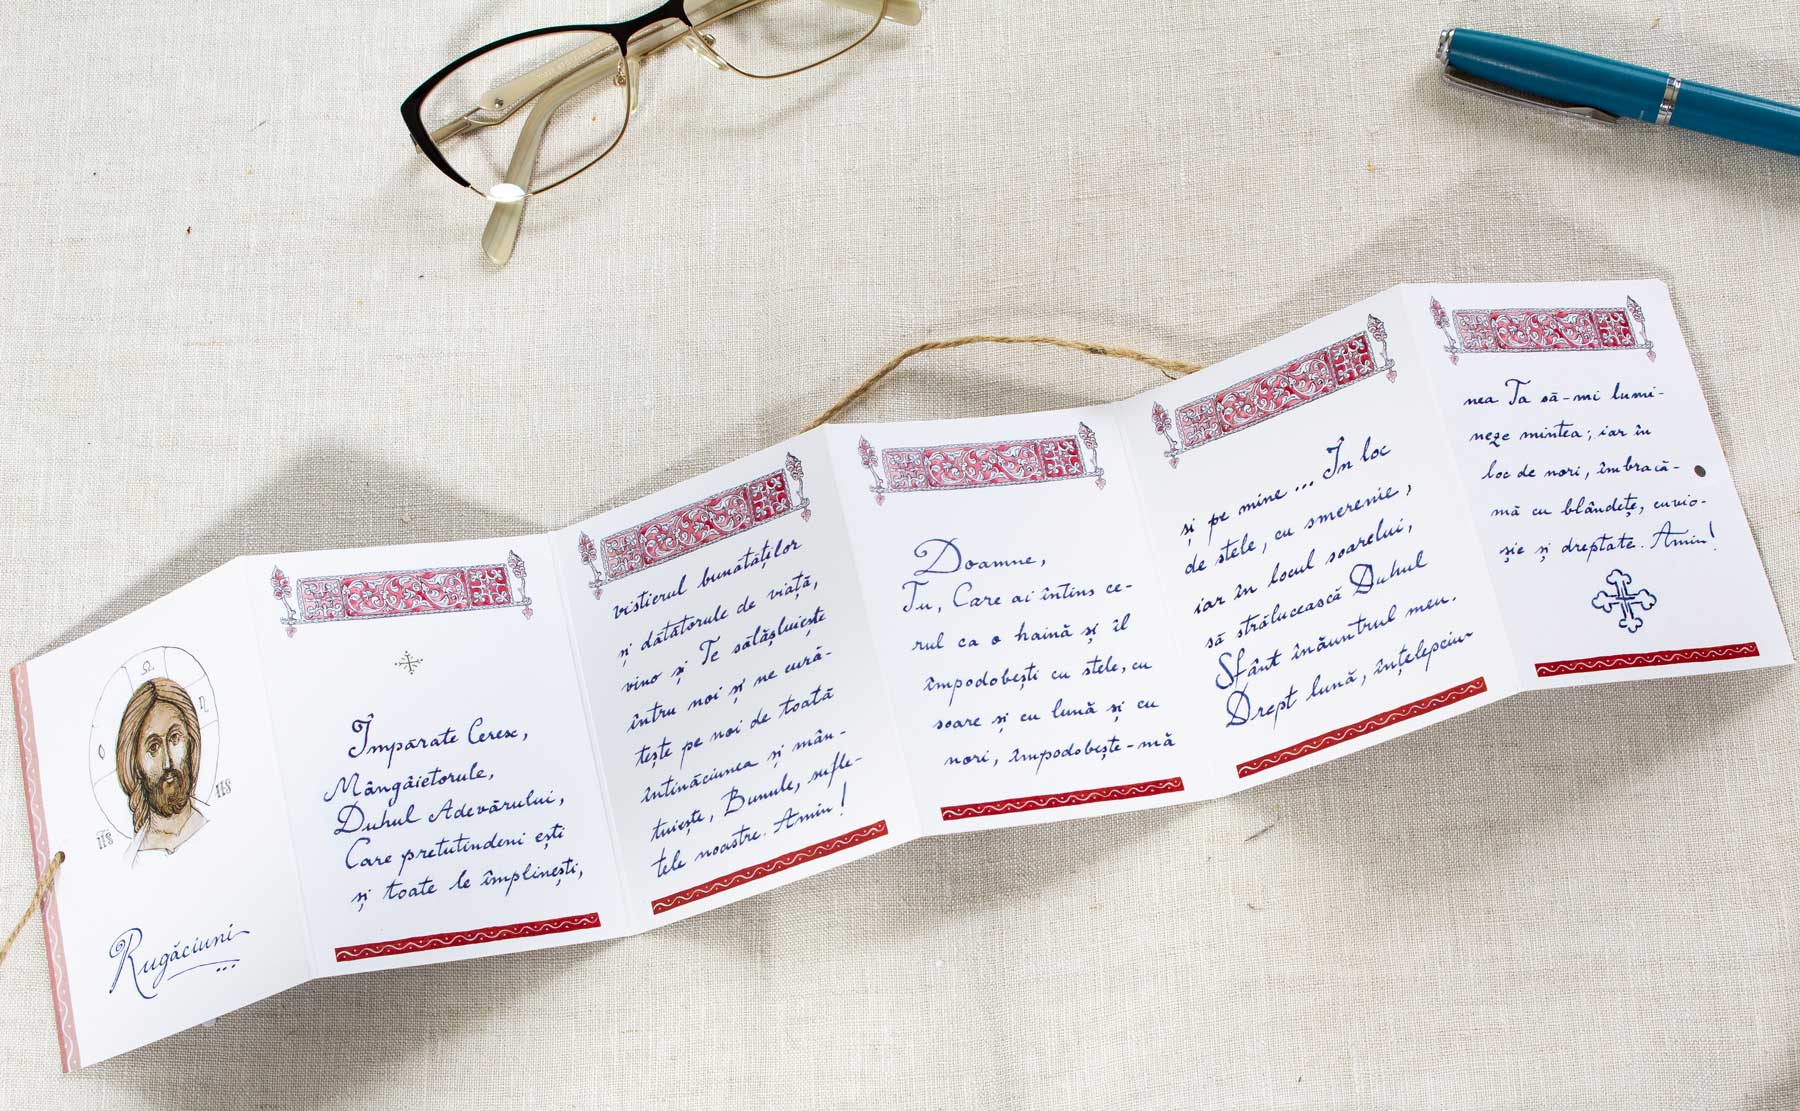 Ο
Ω
Η
ΙΗΣ
ΠΗΣ
Rugăciuni
Împărate Ceresc,
Mângâietorule,
Duhul Adevărului,
Care pretutindeni ești
și toate le împlinești,
vistierul bunătăților
și dătătorule de viață,
vino și Te sălășluiește
întru noi și ne cură-
tește pe noi de toată
întinăciunea și mân-
tuiește, Bunule, sufle-
tele noastre. Amin!
Doamne,
Tu, Care ai întins ce-
rul ca o haină și îl
împodobești cu stele, cu
soare și cu lună și cu
nori, împodobește-mă
și pe mine... În loc
de stele, cu smerenie,
iar în locul soarelui,
să strălucească Duhul
Sfânt înăuntrul meu.
Drept lună, înțelepciu-
nea Ta să-mi lumi-
neze mintea; iar în
loc de nori, îmbracă-
mă cu blândețe, cuvio-
șie și dreptate. Amin!